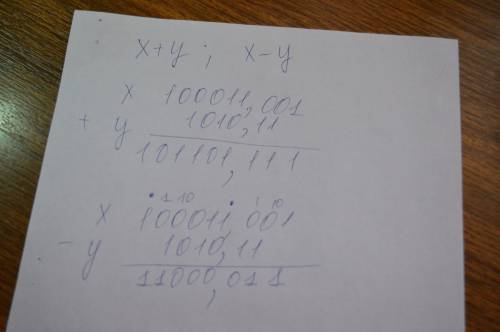 x+y ; x-y
x 100011,001
+ y 1010,11
101101,111
• 1 10 • 1 10
x 100011,001
- y 1010,11
11000,011